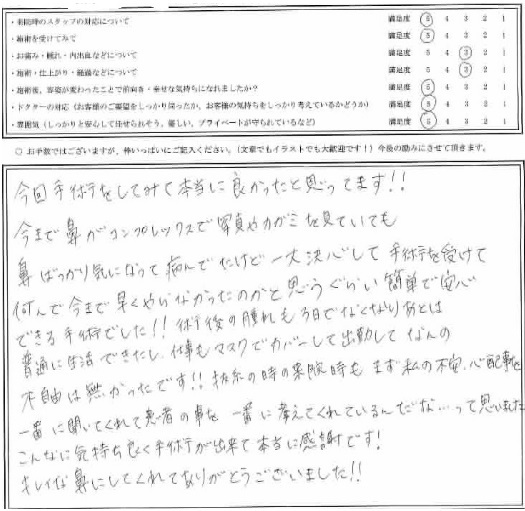 ・来院時のスタッフの対応について 満足度 5 4 3 2 1
・施術を受けてみて 満足度 5 4 3 2 1
・お痛み・腫れ・内出血などについて 満足度 5 4 3 2 1
・施術・仕上がり・経過などについて 満足度 5 4 3 2 1
・施術後、容姿が変わったことで前向き・幸せな気持ちになれましたか? 満足度 5 4 3 2 1
・ドクターの対応（お客様のご要望をしっかり伺ったか、お客様の気持ちをしっかり考えているかどうか） 満足度 5 4 3 2 1
・雰囲気（しっかりと安心して任せられそう、優しい、プライベートが守られているなど） 満足度 5 4 3 2 1
○ お手数ではございますが、枠いっぱいにご記入ください。（文章でもイラストでも大歓迎です！）今後の励みにさせて頂きます。
今回手術をしてみて本当に良かったと思ってます!!
今まで鼻がコンプレックスで写真やカガミを見ていても
鼻ばっかり気になって病んでたけど一大決心して手術を受けて
何んで今まで早くやらなかったのかと思うぐらい簡単で安心
できる手術でした!! 術後の腫れも3日でなくなりあとは
普通に生活できたし、仕事もマスクでカバーして出勤してなんの
不自由は無かったです!! 抜糸の時の来院時もまず私の不安、心配事を
一番に聞いてくれて患者の事を一番に考えてくれているんだな…って思いました
こんなに気持ち良く手術が出来て本当に感謝です!
キレイな鼻にしてくれてありがとうございました!!